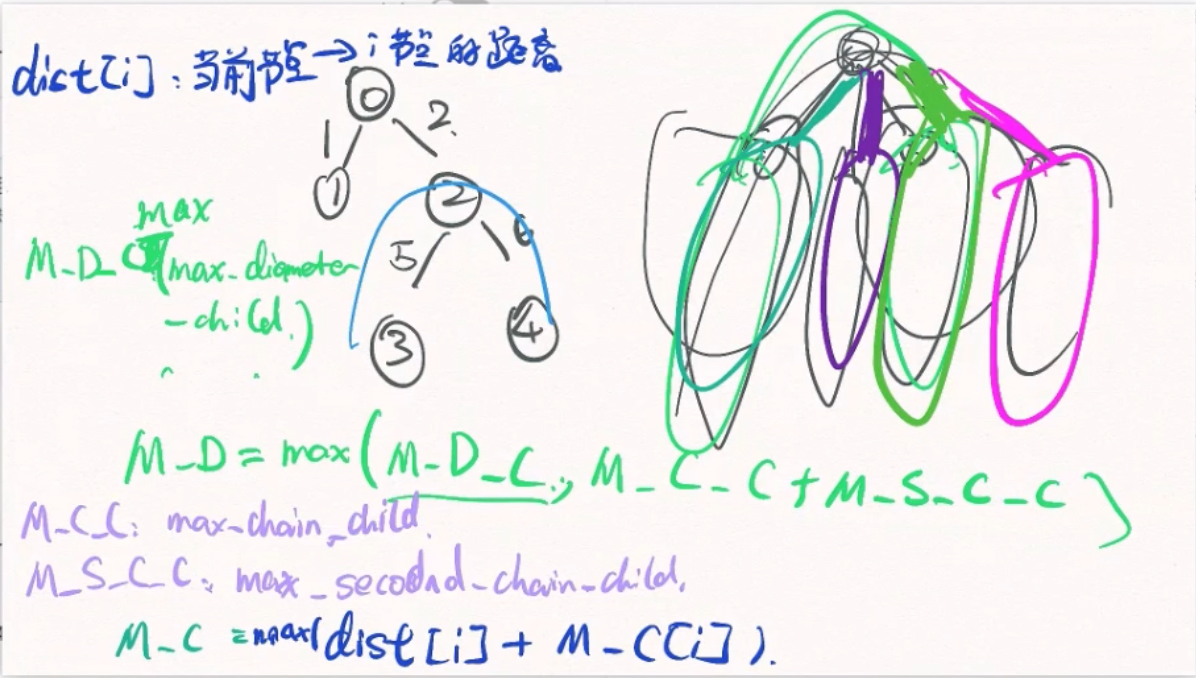 dist[i]：当前节点→i 节点的距离
0
1
2
1
2
5
6
3
4
max
M_D_C
(max_diameter
_child.)
M_D = max(M_D_C., M_C_C + M_S_C_C)
M_C_C: max_chain_child.
M_S_C_C: max_secodnd_chain_child.
M_C = max(dist[i] + M_C[i]).